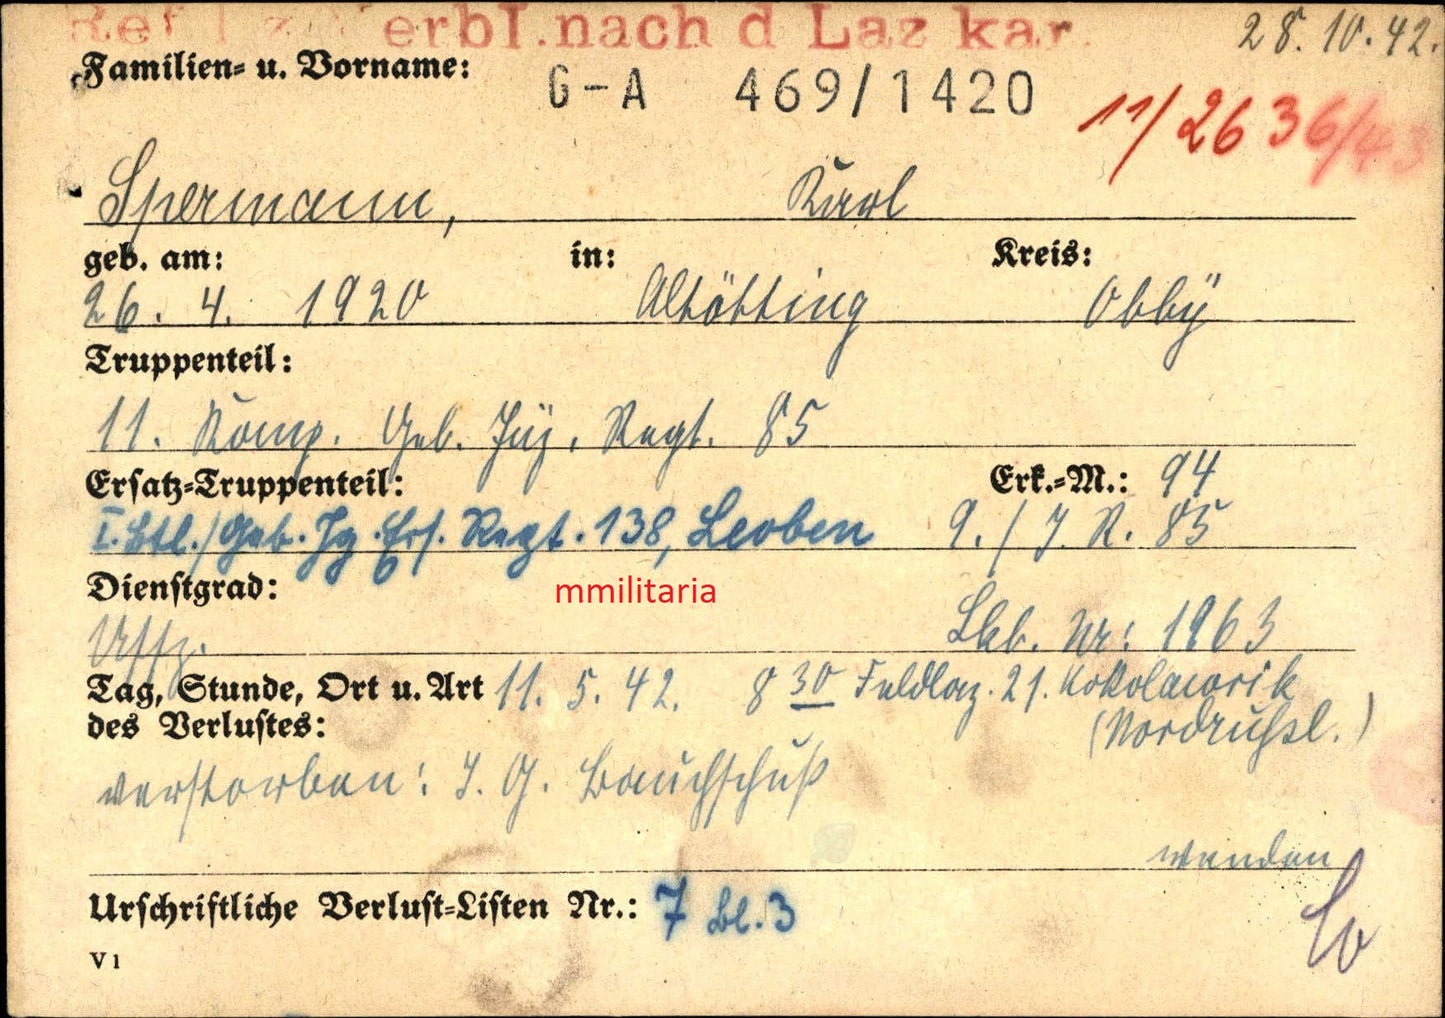 erbl.nach d Laz kar.
28.10.42.
Familien- u. Vorname:
G-A 469/1420
11/2636/43
Spermann, Karl
geb. am: in: Kreis:
26. 4. 1920 Altötting Obby
Truppenteil:
11. Komp. Geb. Jäg. Regt. 85
Ersatz-Truppenteil: Erk.-M.: 94
I. Btl./Geb. Jg. Ers. Regt. 138, Leoben 9./J. R. 85
Dienstgrad:
mmilitaria
Uffz. Lkb. Nr: 1963
Tag, Stunde, Ort u. Art 11. 5. 42. 8 30 Feldlaz. 21. Kokolaworik
des Verlustes: (Nordrußl.)
verstorben: I. G. Bauchschuß
wenden
Urschriftliche Verlust-Listen Nr.: 7 Bl. 3
V 1